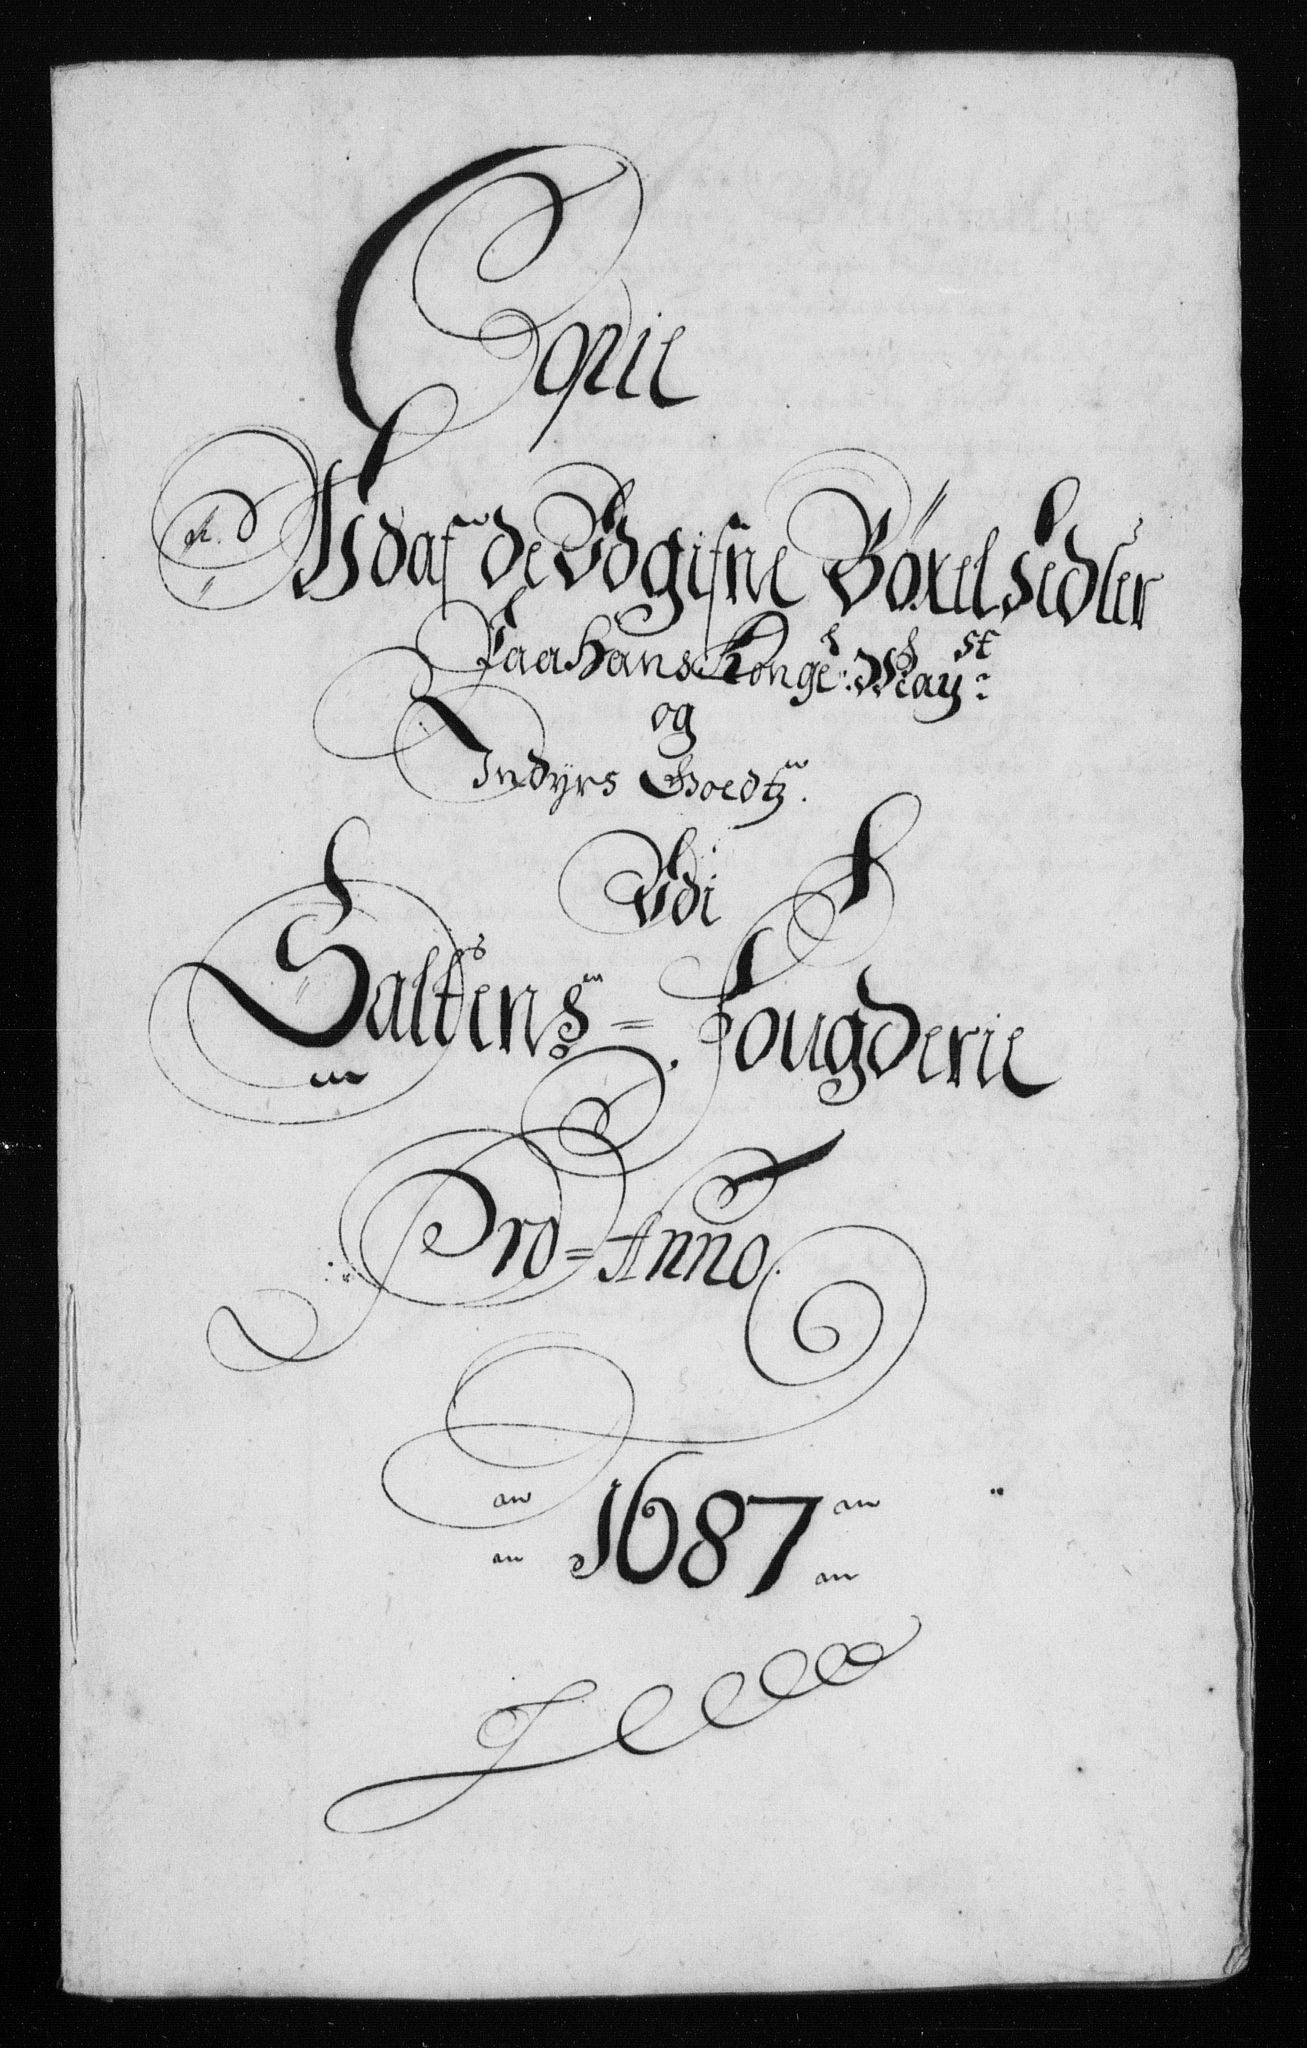 Copie
Udaf de Udgifne Böxelsedler
Paa Hans Kongel: May:st
og
Indyrs Goedtz.
Udi
Saltens = Fougderie
Pro = Anno
1687